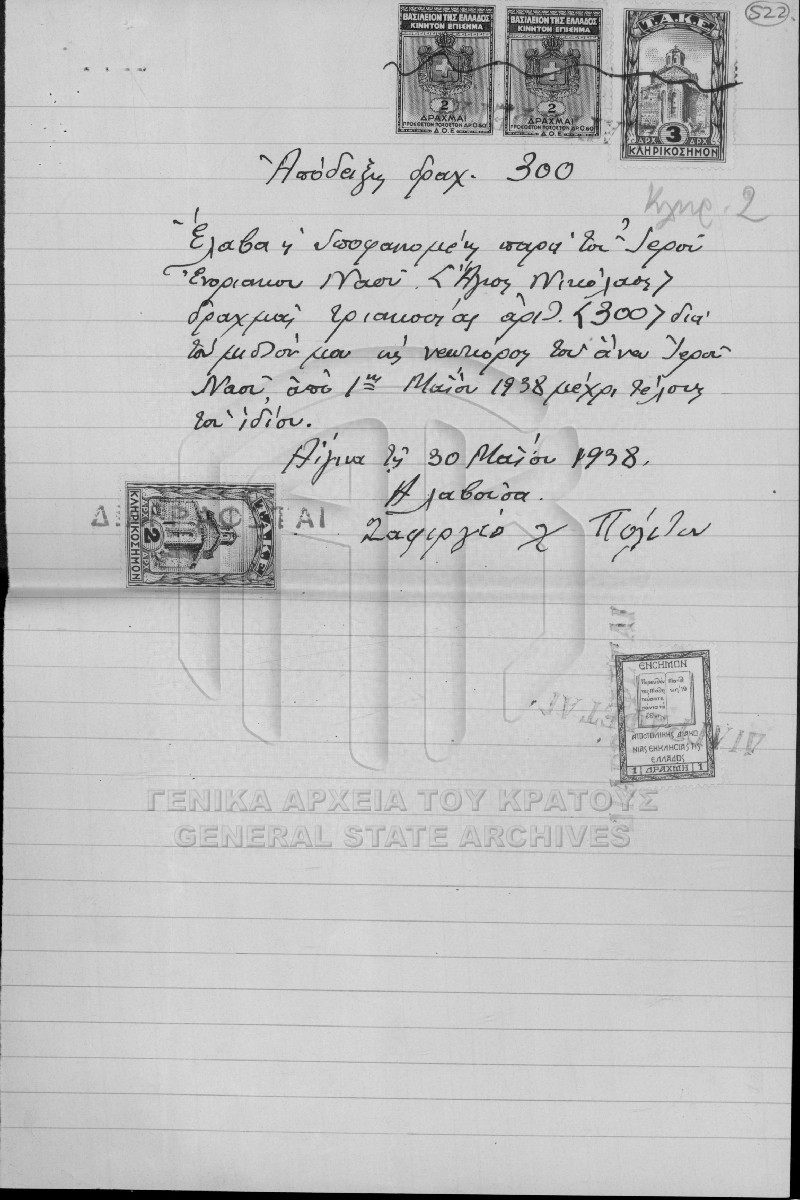 522
ΒΑΣΙΛΕΙΟΝ ΤΗΣ ΕΛΛΑΔΟΣ
ΚΙΝΗΤΟΝ ΕΠΙΣΗΜΑ
2
ΔΡΑΧΜΑΙ
Δ.Ο.Ε
ΒΑΣΙΛΕΙΟΝ ΤΗΣ ΕΛΛΑΔΟΣ
ΚΙΝΗΤΟΝ ΕΠΙΣΗΜΑ
2
ΔΡΑΧΜΑΙ
Δ.Ο.Ε
Τ.Α.Κ.Ε
ΔΡΧ 3 ΔΡΧ
ΚΛΗΡΙΚΟΣΗΜΟΝ
Ἀπόδειξις δραχ. 300
Κληρ. 2
Ἔλαβα ἡ ὑποφαινομένη παρά τοῦ Ἱεροῦ
Ἐνοριακοῦ Ναοῦ <Ἅγιος Νικόλαος>
δραχμάς τριακοσίας ἀριθ. <300> διά
τόν μισθόν μου ὡς νεωκόρος τοῦ ἄνω Ἱεροῦ
Ναοῦ, ἀπό 1ης Μαΐου 1938 μέχρι τέλους
τοῦ ἰδίου.
Αἴγινα τῇ 30 Μαΐου 1938.
Ἡ λαβοῦσα
Ζαφειρλιό χ Πολίτου
Τ.Α.Κ.Ε
ΔΡΧ 2 ΔΡΧ
ΚΛΗΡΙΚΟΣΗΜΟΝ
ΕΝΣΗΜΟΝ
ΑΠΟΣΤΟΛΙΚΗΣ ΔΙΑΚΟ
ΝΙΑΣ ΕΚΚΛΗΣΙΑΣ ΤΗΣ
ΕΛΛΑΔΟΣ
1 ΔΡΑΧΜΗ 1
ΓΕΝΙΚΑ ΑΡΧΕΙΑ ΤΟΥ ΚΡΑΤΟΥΣ
GENERAL STATE ARCHIVES